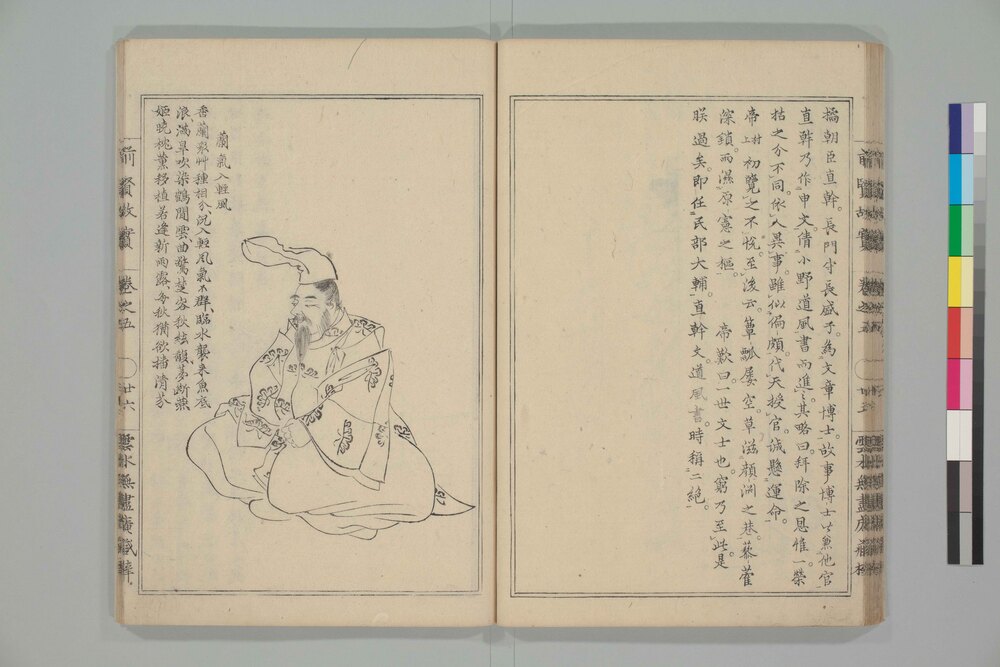 橘朝臣直幹。長門守長盛子。為文章博士。故事博士以兼他官
直幹乃作申文倩小野道風書而進之。其略曰。拜除之恩惟一。榮
枯之分不同。依人異事。雖似偏頗。代天授官。誠懸運命。
帝村上初覽之不悅。至後云。簞瓢屢空。草滋顏淵之巷。藜藋
深鎖。雨濕原憲之樞。帝歎曰。一世文士也。窮乃至此。是
朕過矣。即任民部大輔。直幹文。道風書。時稱二絕。
蘭氣入輕風
香蘭衆艸種相分、況入輕風氣不群、臨水襲來魚底
浪、滿皐吹染鶴間雲、曲驚楚客秋絃馥、夢斷燕
姬曉枕薰、移植若逢新雨露、每秋猶欲播清芬
前賢故實
卷之五
廿六
雲水無盡庵藏梓